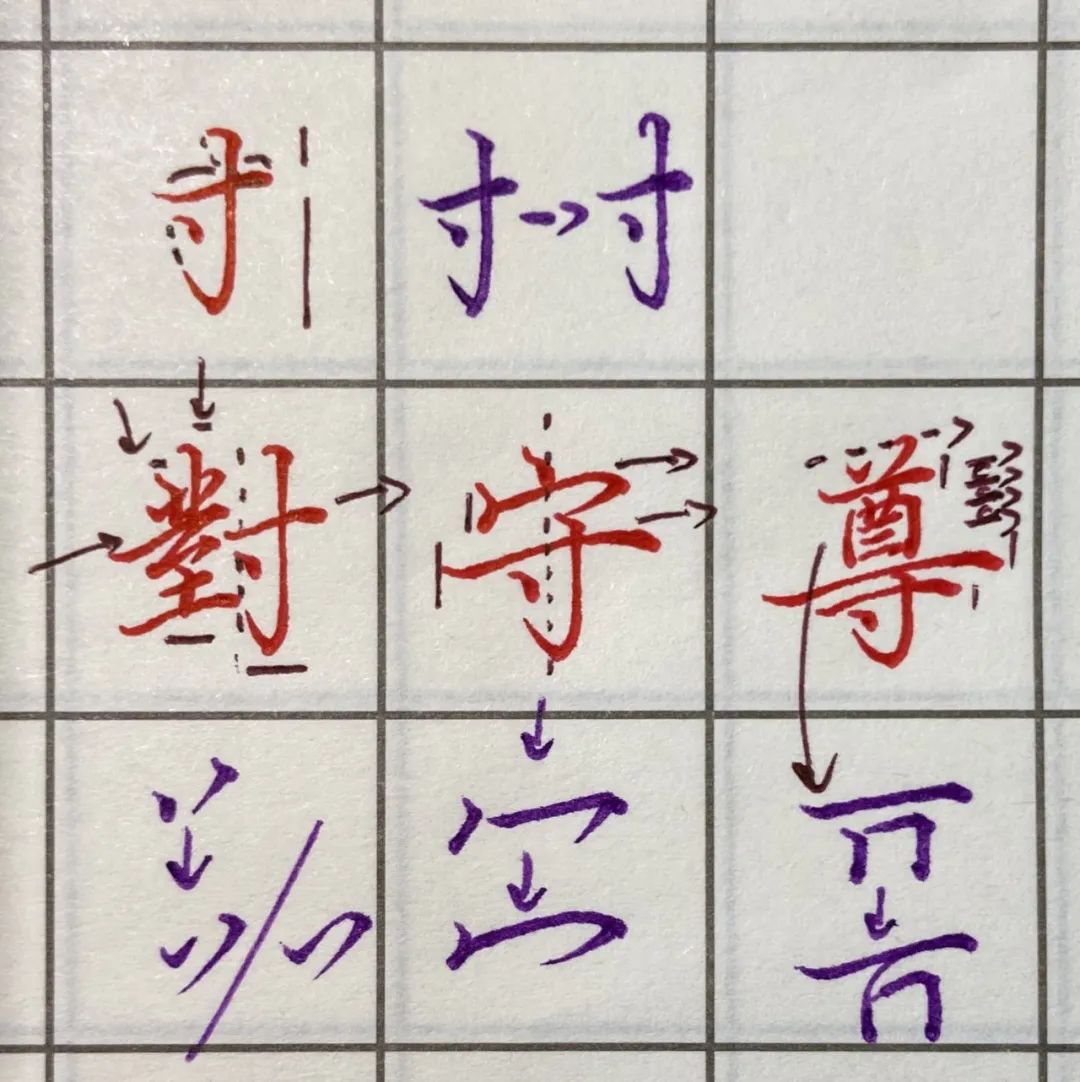 寸 寸 寸
對 守 尊